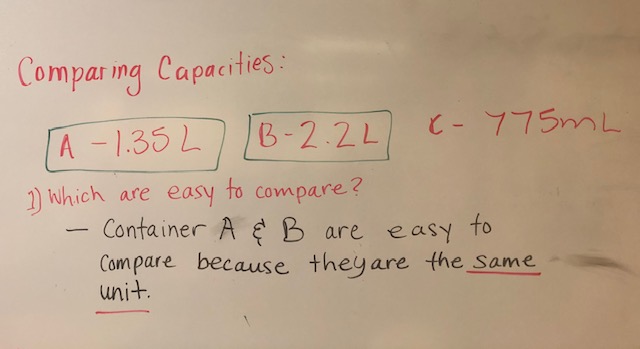 Comparing Capacities:
A - 1.35 L B - 2.2 L C - 775mL
1) Which are easy to compare?
- Container A & B are easy to
compare because they are the same
unit.